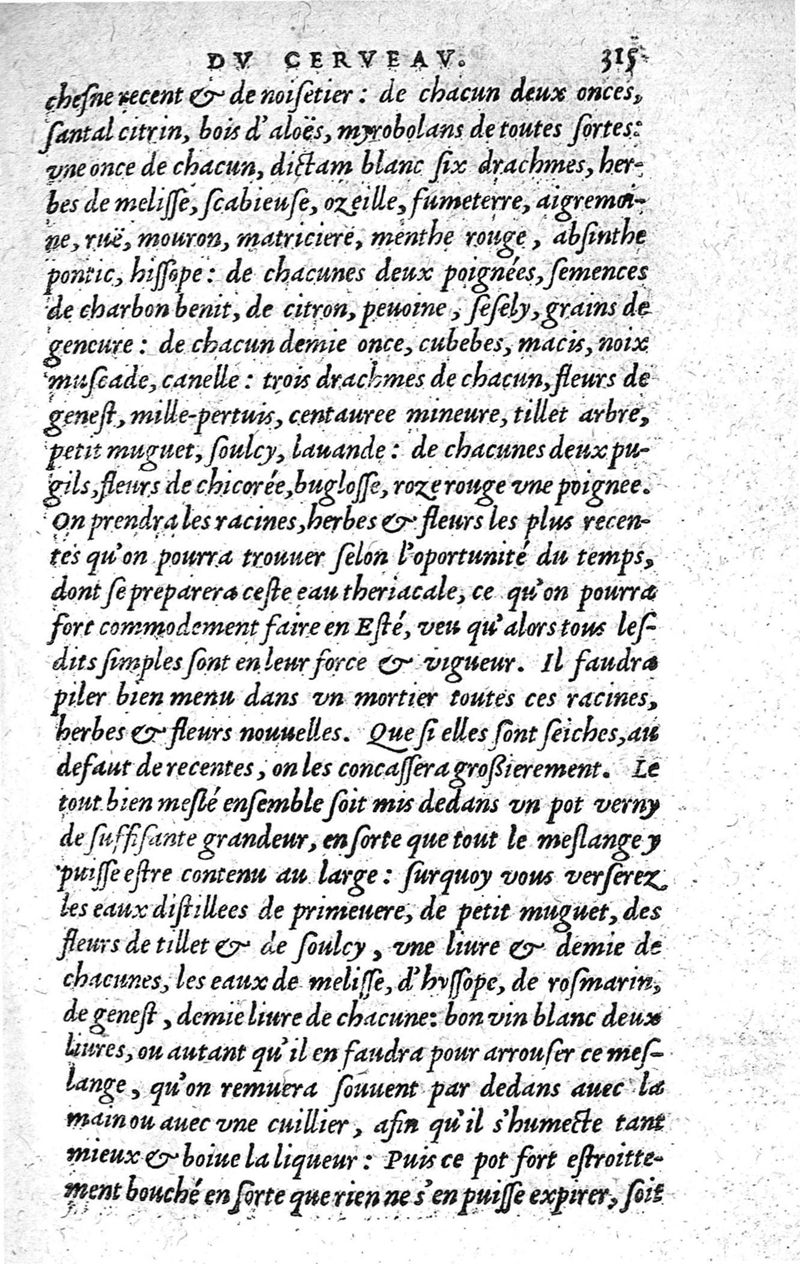 DV CERVEAV. 315
chesne recent & de noisetier : de chacun deux onces,
santal citrin, bois d'aloës, myrobolans de toutes sortes:
vne once de chacun, dictam blanc six drachmes, her-
bes de melisse, scabieuse, ozeille, fumeterre, aigremoi-
ne, ruë, mouron, matriciere, menthe rouge, absinthe
pontic, hissope : de chacunes deux poignées, semences
de charbon benit, de citron, peuoine, sesely, grains de
geneure : de chacun demie once, cubebes, macis, noix
muscade, canelle : trois drachmes de chacun, fleurs de
genest, mille-pertuis, centauree mineure, tillet arbre,
petit muguet, soulcy, lauande : de chacunes deux pu-
gils, fleurs de chicorée, buglosse, roze rouge vne poignee.
On prendra les racines, herbes & fleurs les plus recen-
tes qu'on pourra trouuer selon l'oportunité du temps,
dont se preparera ceste eau theriacale, ce qu'on pourra
fort commodement faire en Esté, veu qu'alors tous les-
dits simples sont en leur force & vigueur. Il faudra
piler bien menu dans vn mortier toutes ces racines,
herbes & fleurs nouuelles. Que si elles sont seiches, au
defaut de recentes, on les concassera grossierement. Le
tout bien meslé ensemble soit mis dedans vn pot verny
de suffisante grandeur, en sorte que tout le meslange y
puisse estre contenu au large : surquoy vous verserez
les eaux distillees de primeuere, de petit muguet, des
fleurs de tillet & de soulcy, vne liure & demie de
chacunes, les eaux de melisse, d'hyssope, de rosmarin,
de genest, demie liure de chacune: bon vin blanc deux
liures, ou autant qu'il en faudra pour arrouser ce mes-
lange, qu'on remuera souuent par dedans auec la
main ou auec vne cuillier, afin qu'il s'humecte tant
mieux & boiue la liqueur : Puis ce pot fort estroitte-
ment bouché en sorte que rien ne s'en puisse expirer, soit